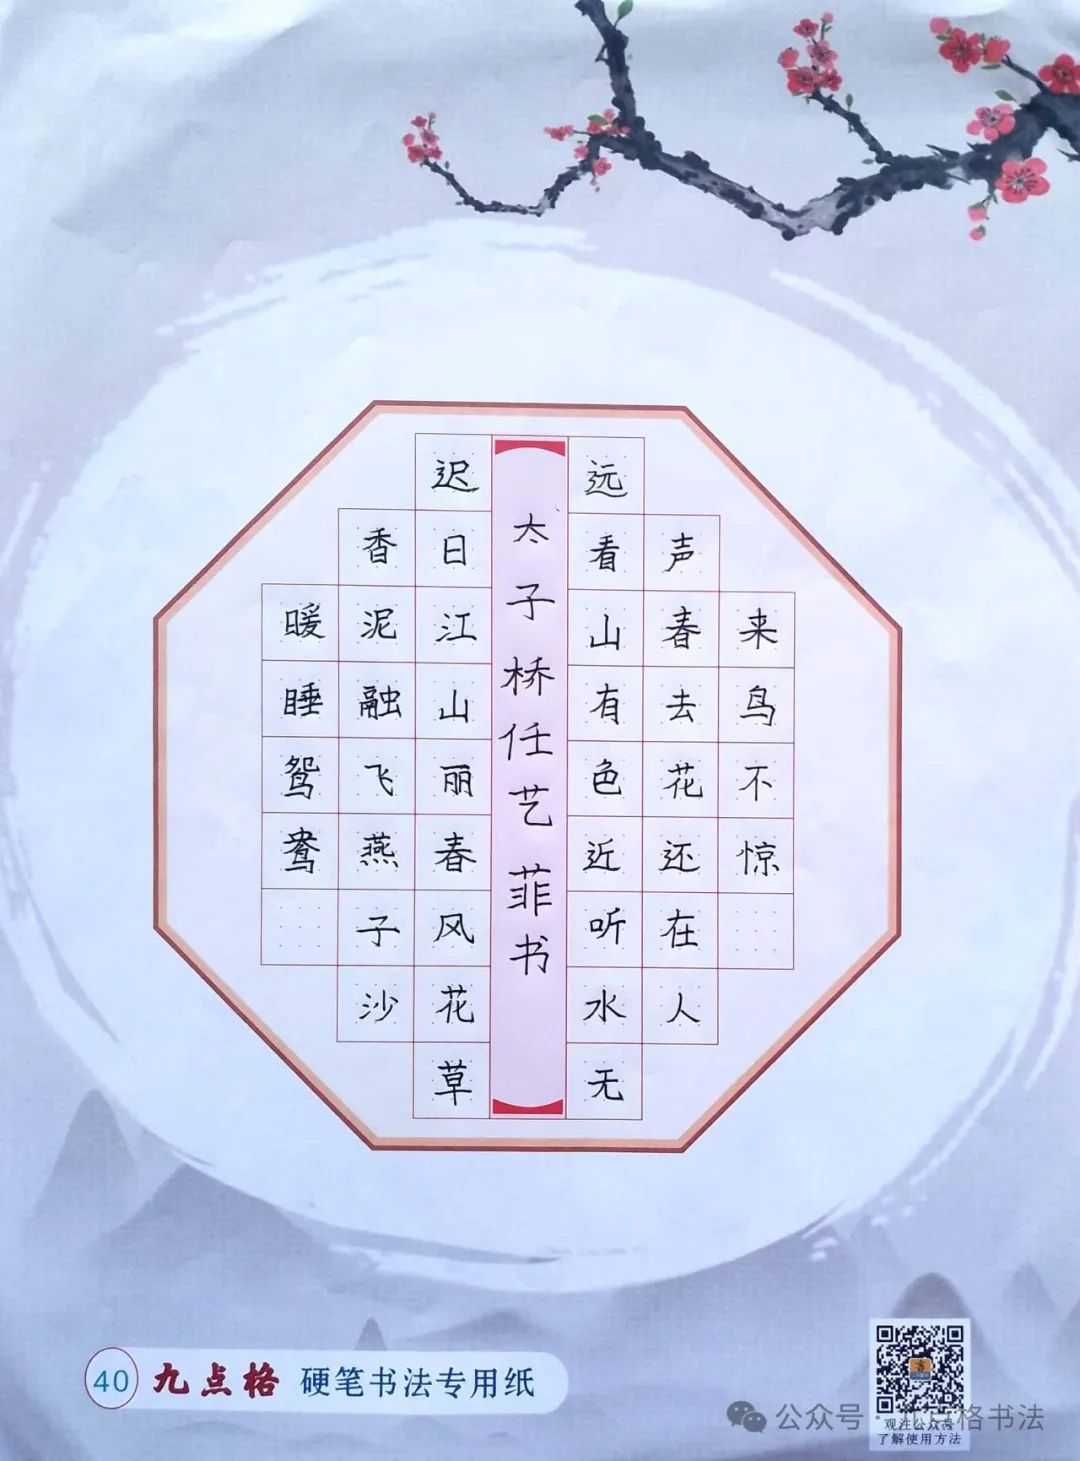 远看山有色近听水无
声春去花还在人
来鸟不惊
迟日江山丽春风花草
香泥融飞燕子沙
暖睡鸳鸯
太子桥任艺菲书
40 九点格 硬笔书法专用纸
观注公众号
了解使用方法
公众号·九点格书法